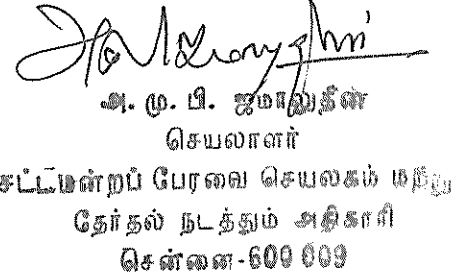 அ. மு. பி. ஜமாலுதீன்
செயலாளர்
சட்டமன்றப் பேரவை செயலகம் மற்றும்
தேர்தல் நடத்தும் அதிகாரி
சென்னை-600 009